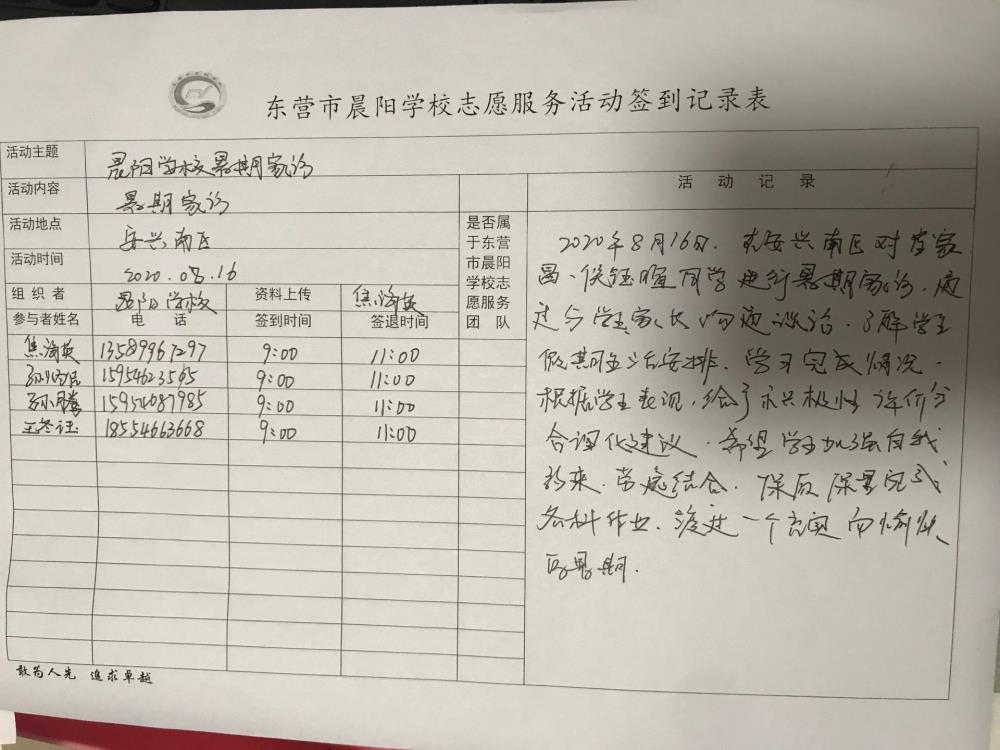 东营市晨阳学校志愿服务活动签到记录表
活动主题 晨阳学校暑期家访
活动内容 暑期家访
活动地点 安兴南区
活动时间 2020.08.16
组织者 晨阳学校 资料上传 焦海英
参与者姓名 电话 签到时间 签退时间
焦海英 13589967297 9:00 11:00
15954623595 9:00 11:00
15954687985 9:00 11:00
18554663668 9:00 11:00
是否属
于东营
市晨阳
学校志
愿服务
团队
活动记录
2020年8月16日,在安兴南区对
同学进行暑期家访,通
过与学生家长沟通谈话,了解学生
假期生活安排、学习完成情况.
根据学生表现,给予积极性评价与
合理化建议,希望学生加强自我
约束,劳逸结合,保质保量完成
各科作业,渡过一个充实而愉快
的暑期.
敢为人先 追求卓越